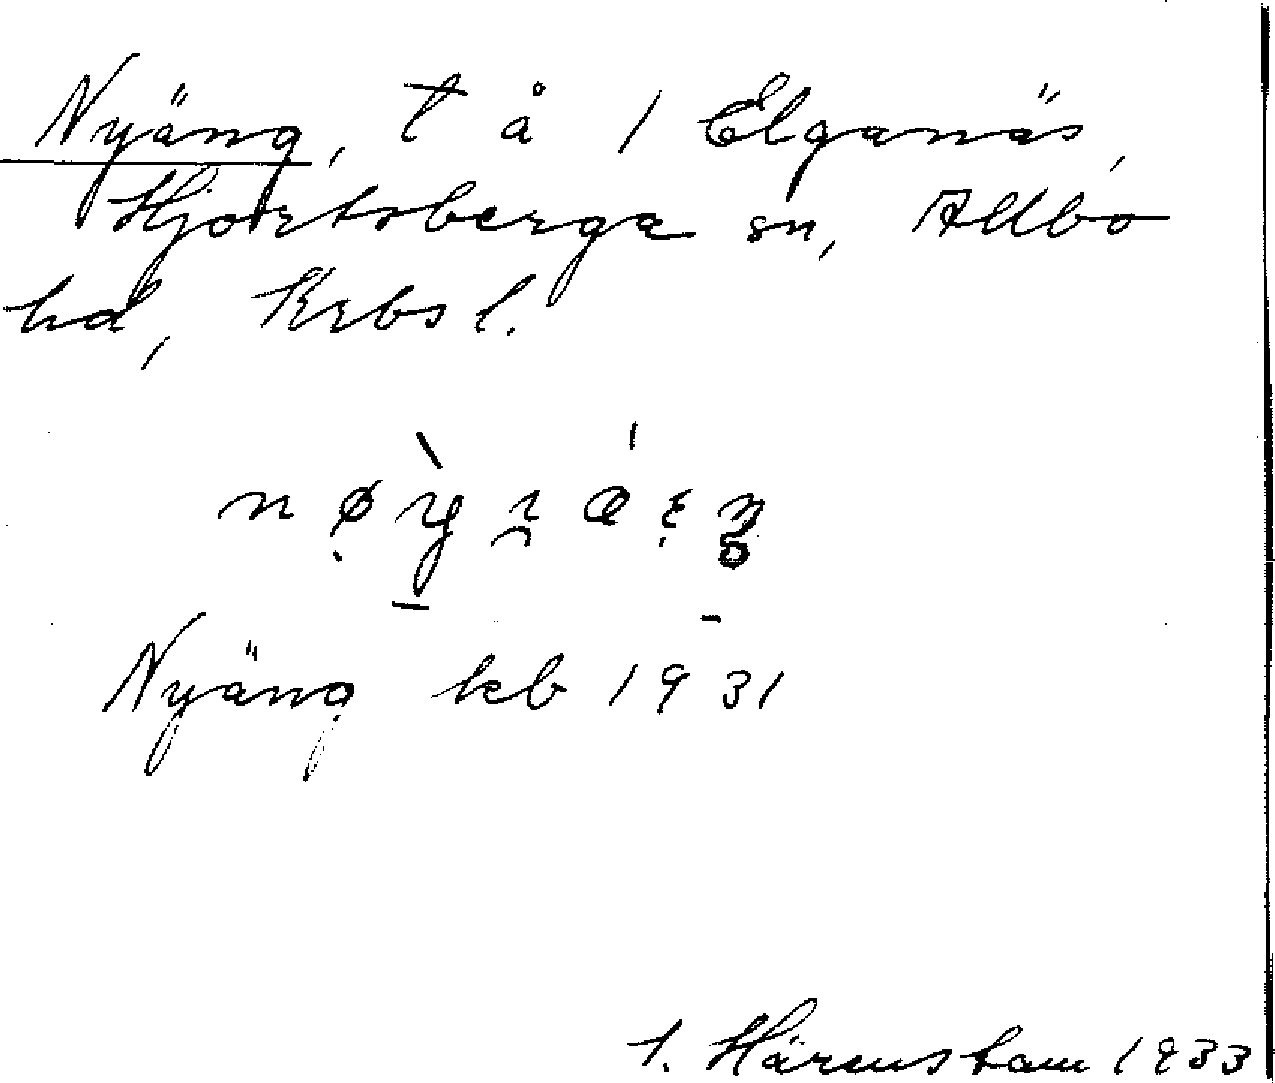 Nyäng, t å 1 Elganäs,
Hjortsberga sn, Allbo
hd, Krbs l.
Nyäng kb 1931
1. Härenstam 1933